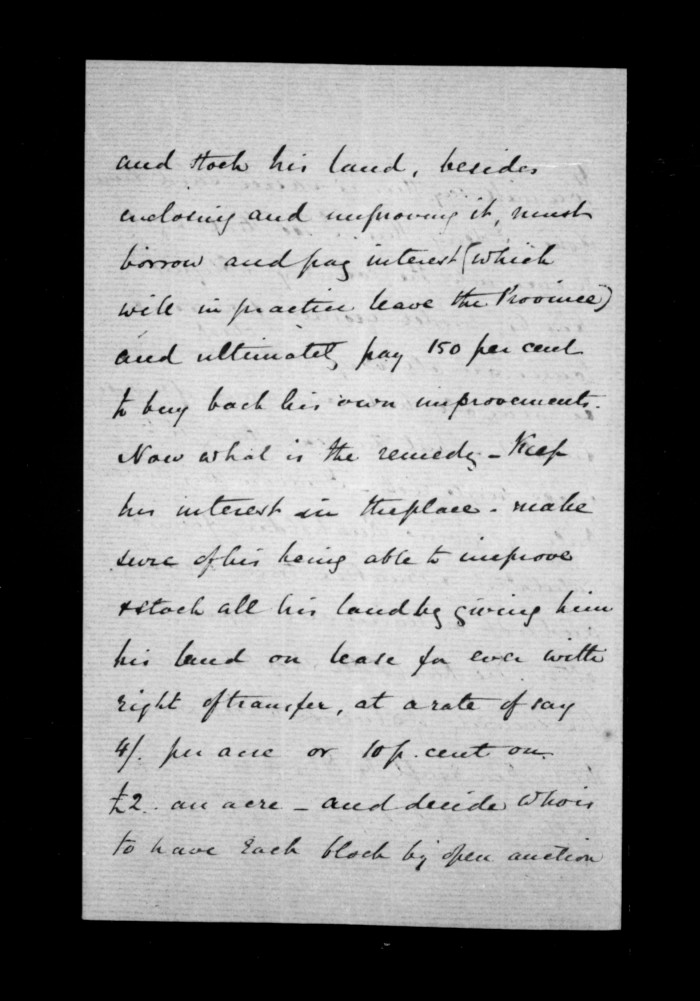 and stock his land, besides
enclosing and improving it, must
borrow and pay interest (which
will in practice leave the Province)
and ultimately pay 150 per cent
to buy back his own improvements.
Now what is the remedy - Keep
his interest in the place - make
sure of his being able to improve
& stock all his land by giving him
his land on lease for ever with
right of transfer, at a rate of say
4/. per acre or 10 p. cent on
£2. an acre - and decide who is
to have each block by open auction